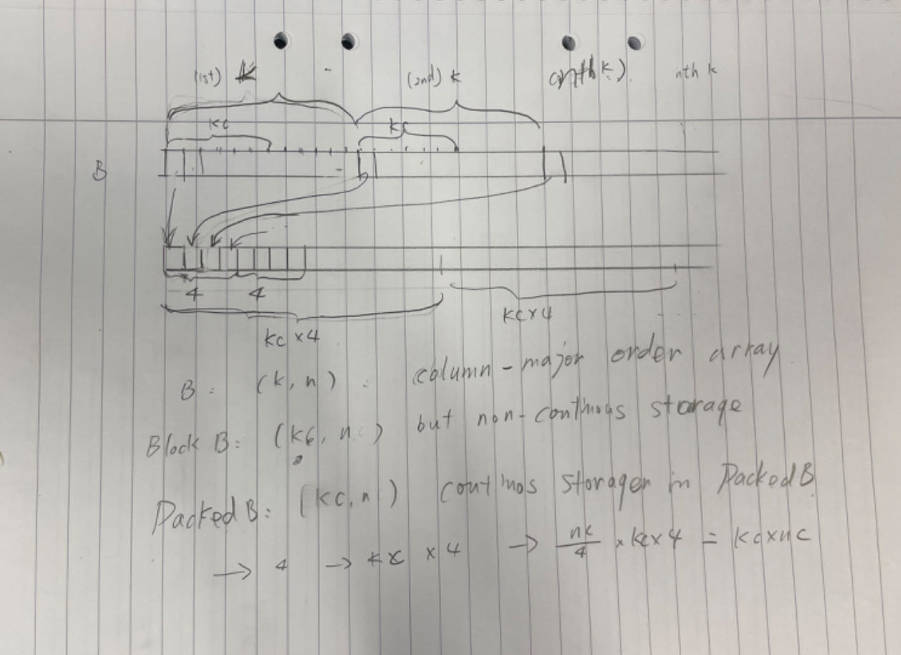 (1st) k (2nd) k (nth k) nth k
kc kc
B
4 4
kc x 4 kc x 4
B: (k, n): column-major order array
Block B: (kc, n) but non-continous storage
Packed B: (kc, n) continos storager in Packed B
→ 4 → kc x 4 → nc/4 x kc x 4 = kc x nc